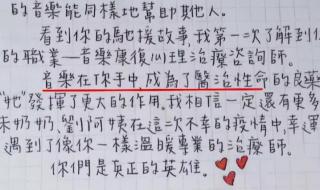 的音樂能同樣地幫助其他人。
看到你的馳援故事,我第一次了解到你
的職業—音樂康復心理治療諮詢師。
音樂在你手中,成為了醫治性命的良藥
"她"發揮了更大的作用。我相信一定還有更多
朱奶奶、劉阿姨在這一次不幸的疫情中,幸運
遇到了像你一樣溫暖專業的治療師。
你們是真正的英雄。